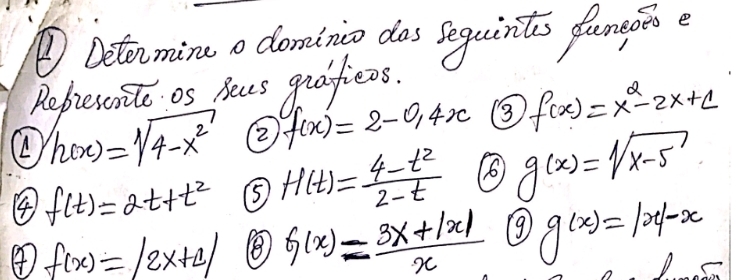 ① Determine o domínio das seguintes funções e
Represente os seus gráficos.
① h(x) = √4-x² ② f(x) = 2-0,4x ③ f(x) = x²-2x+1
④ f(t) = 2t+t² ⑤ H(t) = 4-t²/2-t ⑥ g(x) = √x-5
⑦ f(x) = |2x+1| ⑧ G(x) = 3x+|x|/x ⑨ g(x) = |x|-x